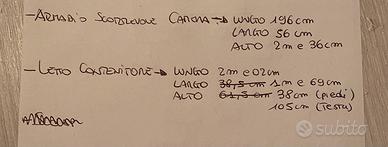 - ARMADIO SCORREVOLE CAMERA → LUNGO 196cm
LARGO 56cm
ALTO 2m e 36cm
- LETTO CONTENITORE → LUNGO 2m e 02cm
LARGO 38,5 cm 1m e 69cm
ALTO 61,5 cm 38cm (piedi)
105cm (testa)
subito